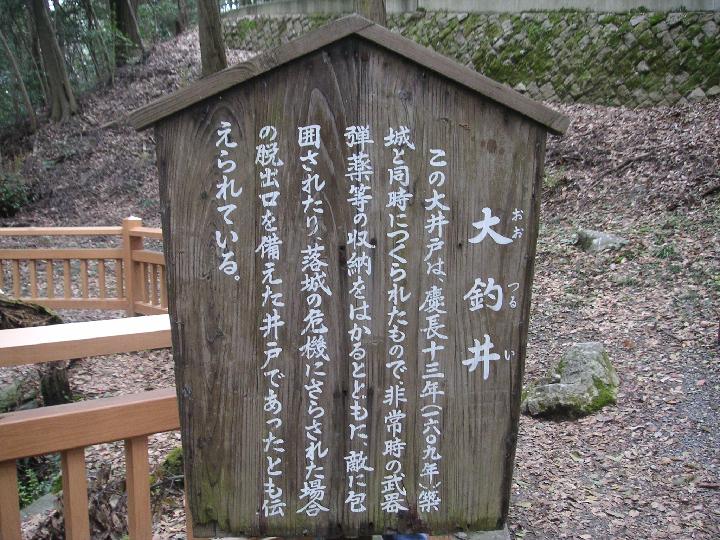 大釣井
おお つるい
この大井戸は、慶長十三年(一六〇九年)築
城と同時につくられたもので、非常時の武器
弾薬等の収納をはかるとともに、敵に包
囲されたり、落城の危機にさらされた場合
の脱出口を備えた井戸であったとも伝
えられている。